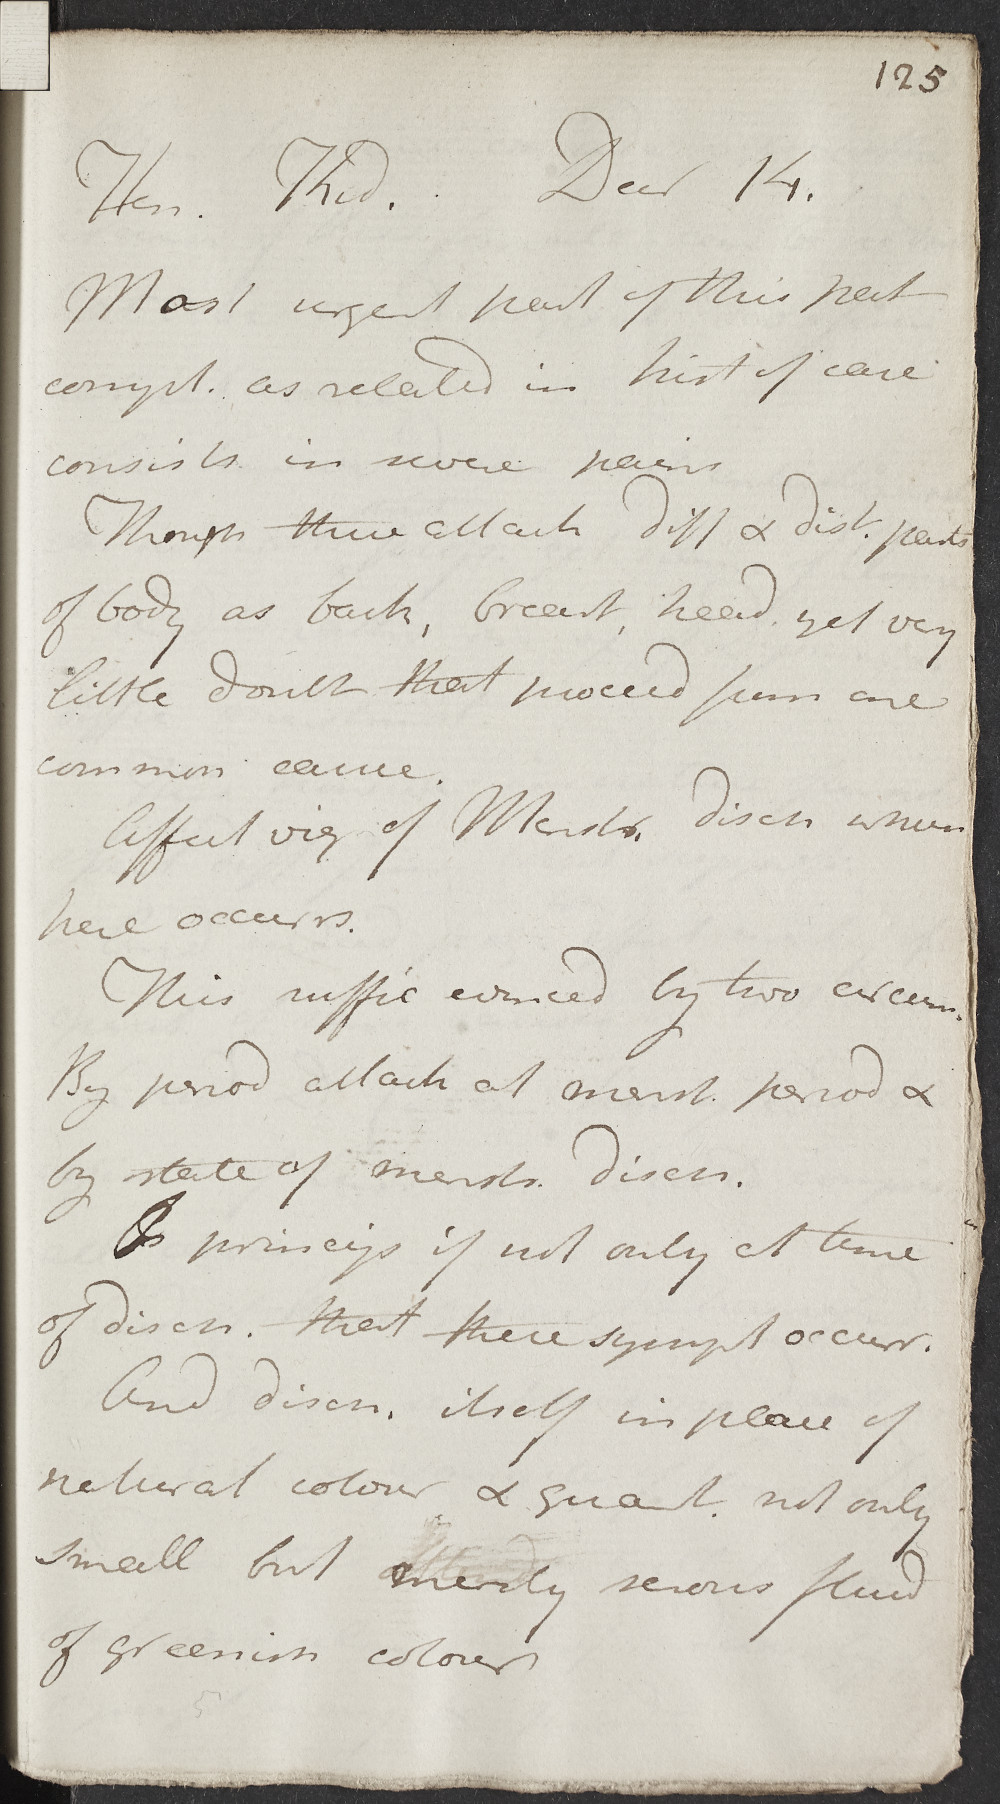 125
Hen. Kid. Decr 14.
Most urgent part of this pat
compt. as related in hist of case
consists in severe pains
Though these attack diff & dist. parts
of body as back, breast, head. yet very
little doubt that proceed from one
common cause.
Affect vig of Menstr. disch when
here occurrs.
This suffic evinced by two circum.
By period attack at menst. period &
by state of menstr. disch.
Is princip if not only at time
of disch. that these sympt occurr.
And disch. itself in place of
natural colour & quant. not only
small but merely serous fluid
of greenish colour